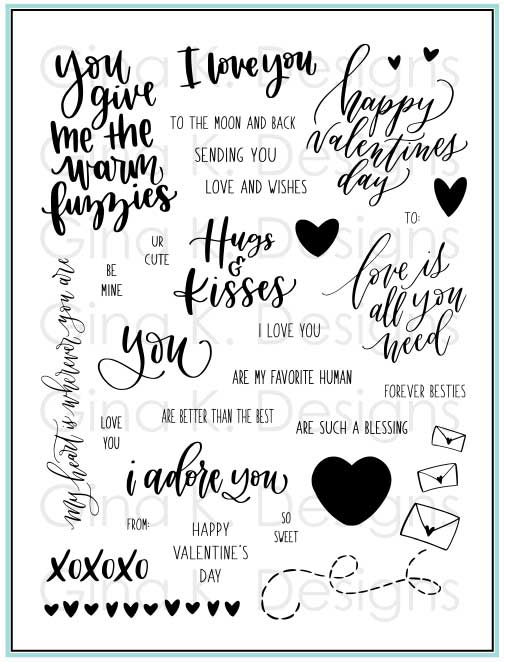 you
give
me the
warm
fuzzies
I love you
TO THE MOON AND BACK
SENDING YOU
LOVE AND WISHES
happy
valentines
day
TO:
UR
CUTE
Hugs
&
Kisses
BE
MINE
love is
all you
need
my heart is wherever you are
I LOVE YOU
you
ARE MY FAVORITE HUMAN
FOREVER BESTIES
ARE BETTER THAN THE BEST
LOVE
YOU
ARE SUCH A BLESSING
i adore you
FROM:
HAPPY
VALENTINE'S
DAY
SO
SWEET
xoxoxo
Gina K. Designs
Gina K. Designs
Gina K. Designs
Gina K. Designs
Gina K. Designs
Gina K. Designs
Gina K. Designs